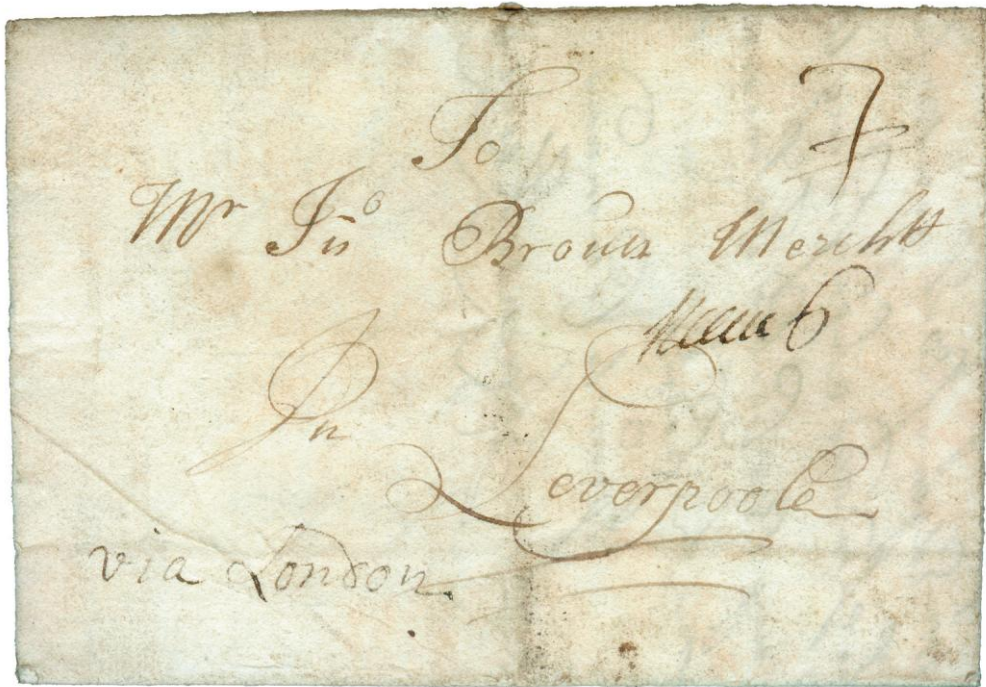 To 7
Mr Jno Brown Mercht
6
In
Leverpoole
via London